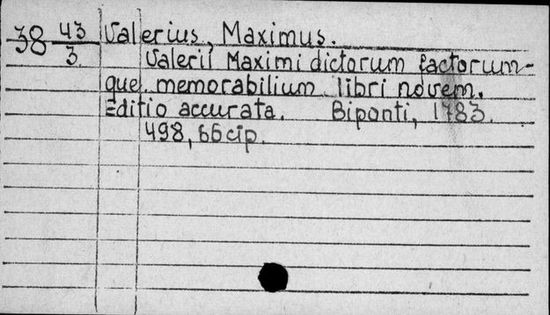 38 43/3 Valerius, Maximus.
Valerii Maximi dictorum factorum-
que memorabilium libri novem.
Editio accurata. Biponti, 1783.
498, 66 cip.